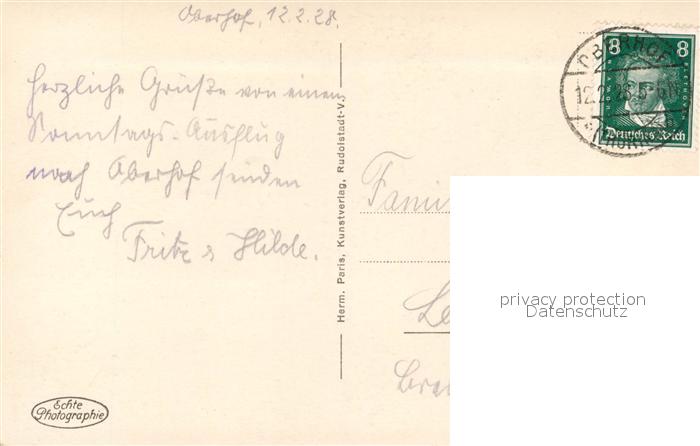 Oberhof, 12.2.28.
Herzliche Grüße von einem
Sonntags-Ausflug
nach Oberhof senden
Euch
Fritz & Hilde.
Herm. Paris, Kunstverlag, Rudolstadt-V.
8 8
Deutsches Reich
OBERHOF
12.2.28.5-6N
Fami
Le
Bre
privacy protection
Datenschutz
Echte
Photographie